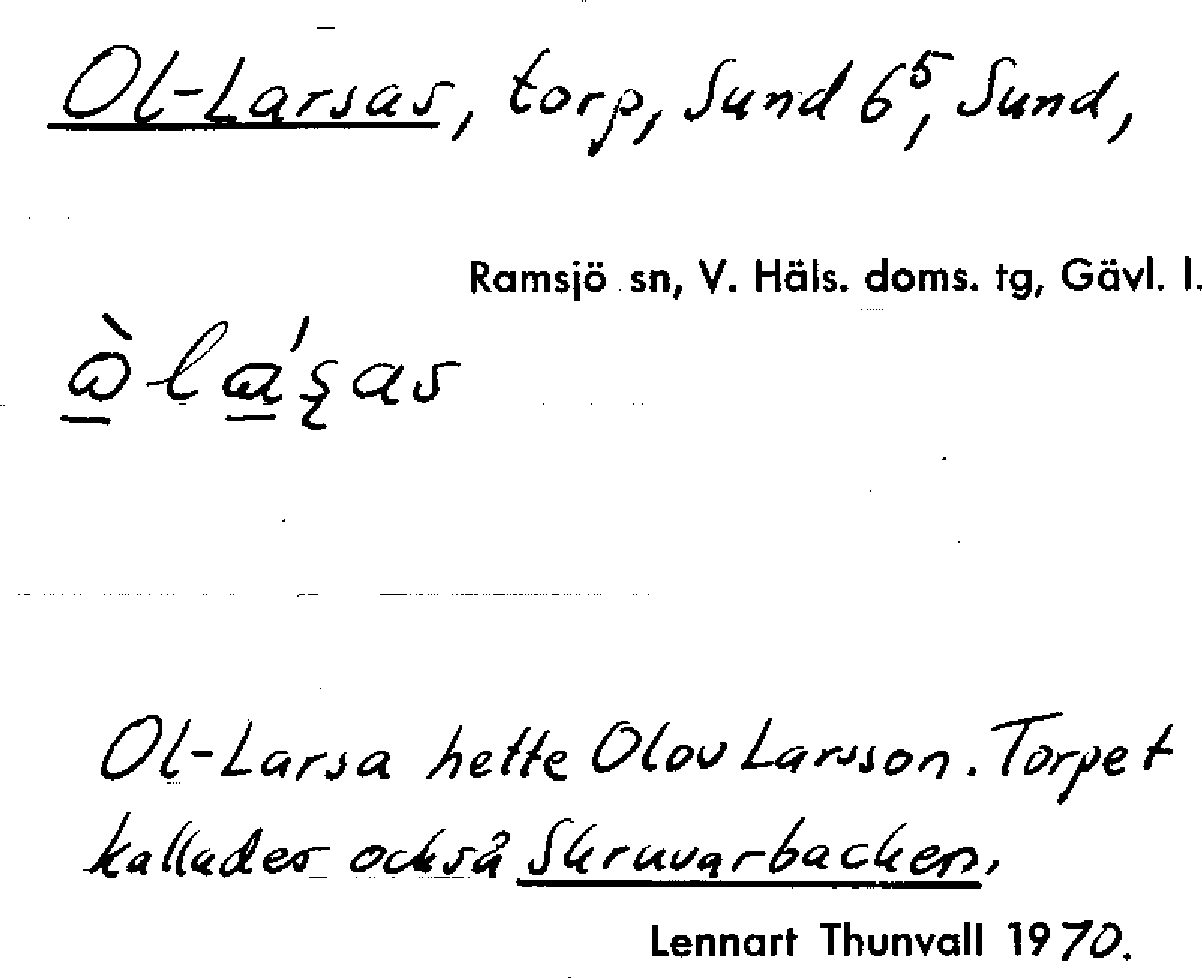 Ol-Larsas, torp, Sund 6⁵, Sund,
Ramsjö sn, V. Häls. doms. tg, Gävl. l.
Ol-Larsa hette Olov Larsson. Torpet
kallades också Skruvarbacken.
Lennart Thunvall 1970.